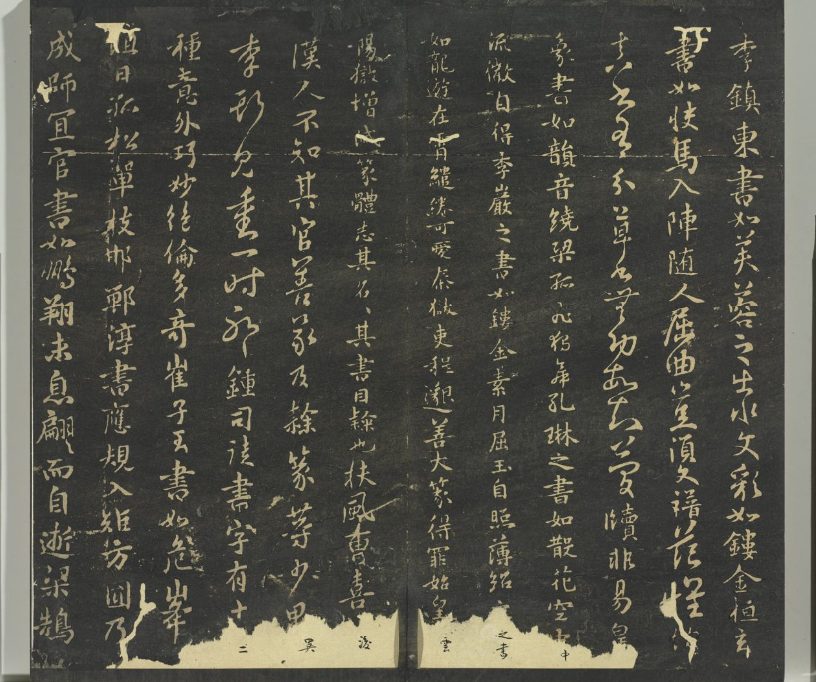 李鎮東書如芙蓉之出水文彩如鏤金桓玄
書如快馬入陣随人屈曲豈須文譜范懷約
真書有分草書無功故知簡牘非易皇
象書如韻音繞梁孤飛獨舞孔琳之書如散花空中
流徽自得李巖之書如鏤金素月屈玉自照薄紹之書
如龍遊在霄繾綣可愛秦獄吏程邈善大篆得罪始皇雲
陽獄增減篆體去其名、其書曰隸也扶風曹喜後
漢人不知其官善篆及隸篆等少異
李斯見重一時耶鍾司徒書字有十二
種意外巧妙絕倫多奇崔子玉書如危峯
阻日孤松單枝邯鄲淳書應規入矩方圓乃
成師宜官書如鵬翔未息翩而自逝梁鵠